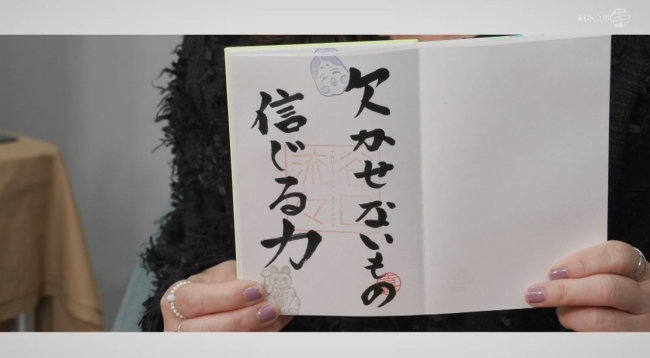 欠かせないもの
信じる力